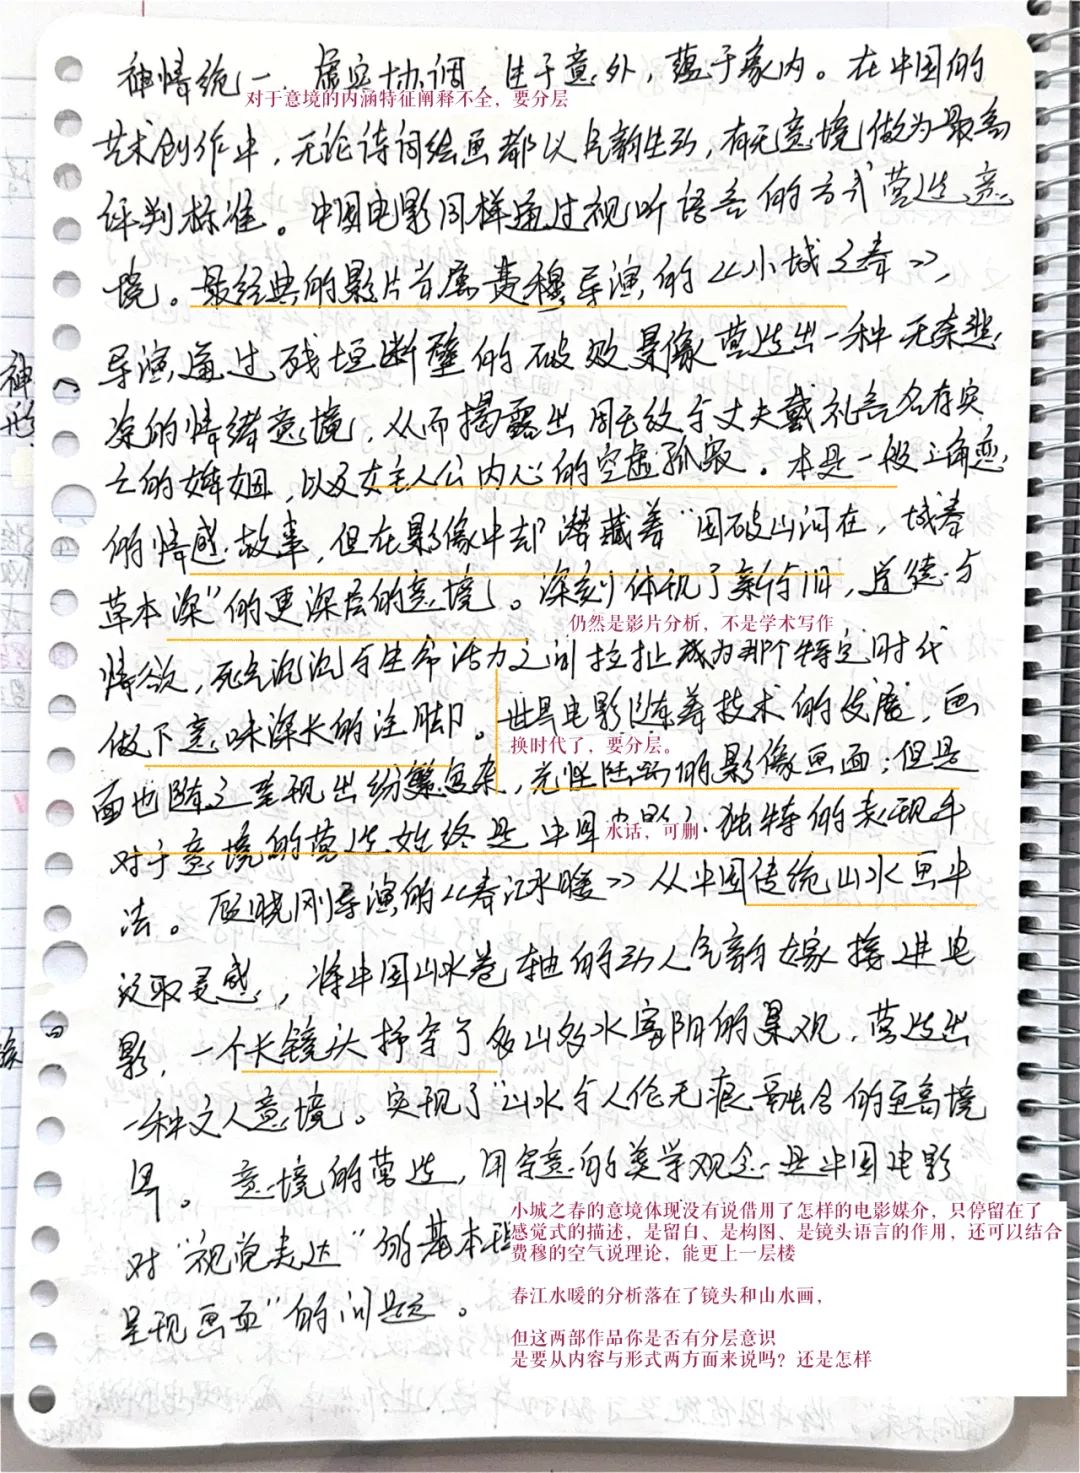 神情统一、虚实协调、生于意外，蕴于象内。在中国的
对于意境的内涵特征阐释不全，要分层
艺术创作中，无论诗词绘画都以气韵生动，有无意境做为最高
评判标准。中国电影同样通过视听语言的方式营造意
境。最经典的影片首属费穆导演的《小城之春》，
导演通过残垣断壁的破败景像营造出一种无奈悲
凉的情绪意境，从而揭露出周玉纹与丈夫戴礼言名存实
亡的婚姻，以及女主人公内心的空虚孤寂。本是一般三角恋
的情感故事，但在影像中却潜藏着“国破山河在，城春
草木深”的更深层的意境。深刻体现了新与旧，道德与
仍然是影片分析，不是学术写作
情欲，死气沉沉与生命活力之间拉扯成为那个特定时代
做下意味深长的注脚。世界电影随着技术的发展，画
换时代了，要分层。
面也随之呈现出纷繁复杂，光怪陆离的影像画面；但是
对于意境的营造始终是中国 独特的表现手
水话，可删
法。顾晓刚导演的《春江水暖》从中国传统山水画中
汲取灵感，将中国山水卷轴的动人气韵嫁接进电
影，一个长镜头抒写了多山多水富阳的景观，营造出
一种文人意境。实现了“山水与人伦无痕融合的至高境
界。 意境的营造，用写意的美学观念是中国电影
对“视觉表达”的基本
呈现画面”的问题。
小城之春的意境体现没有说借用了怎样的电影媒介，只停留在了
感觉式的描述，是留白、是构图、是镜头语言的作用，还可以结合
费穆的空气说理论，能更上一层楼
春江水暖的分析落在了镜头和山水画，
但这两部作品你是否有分层意识
是要从内容与形式两方面来说吗？还是怎样
神
形